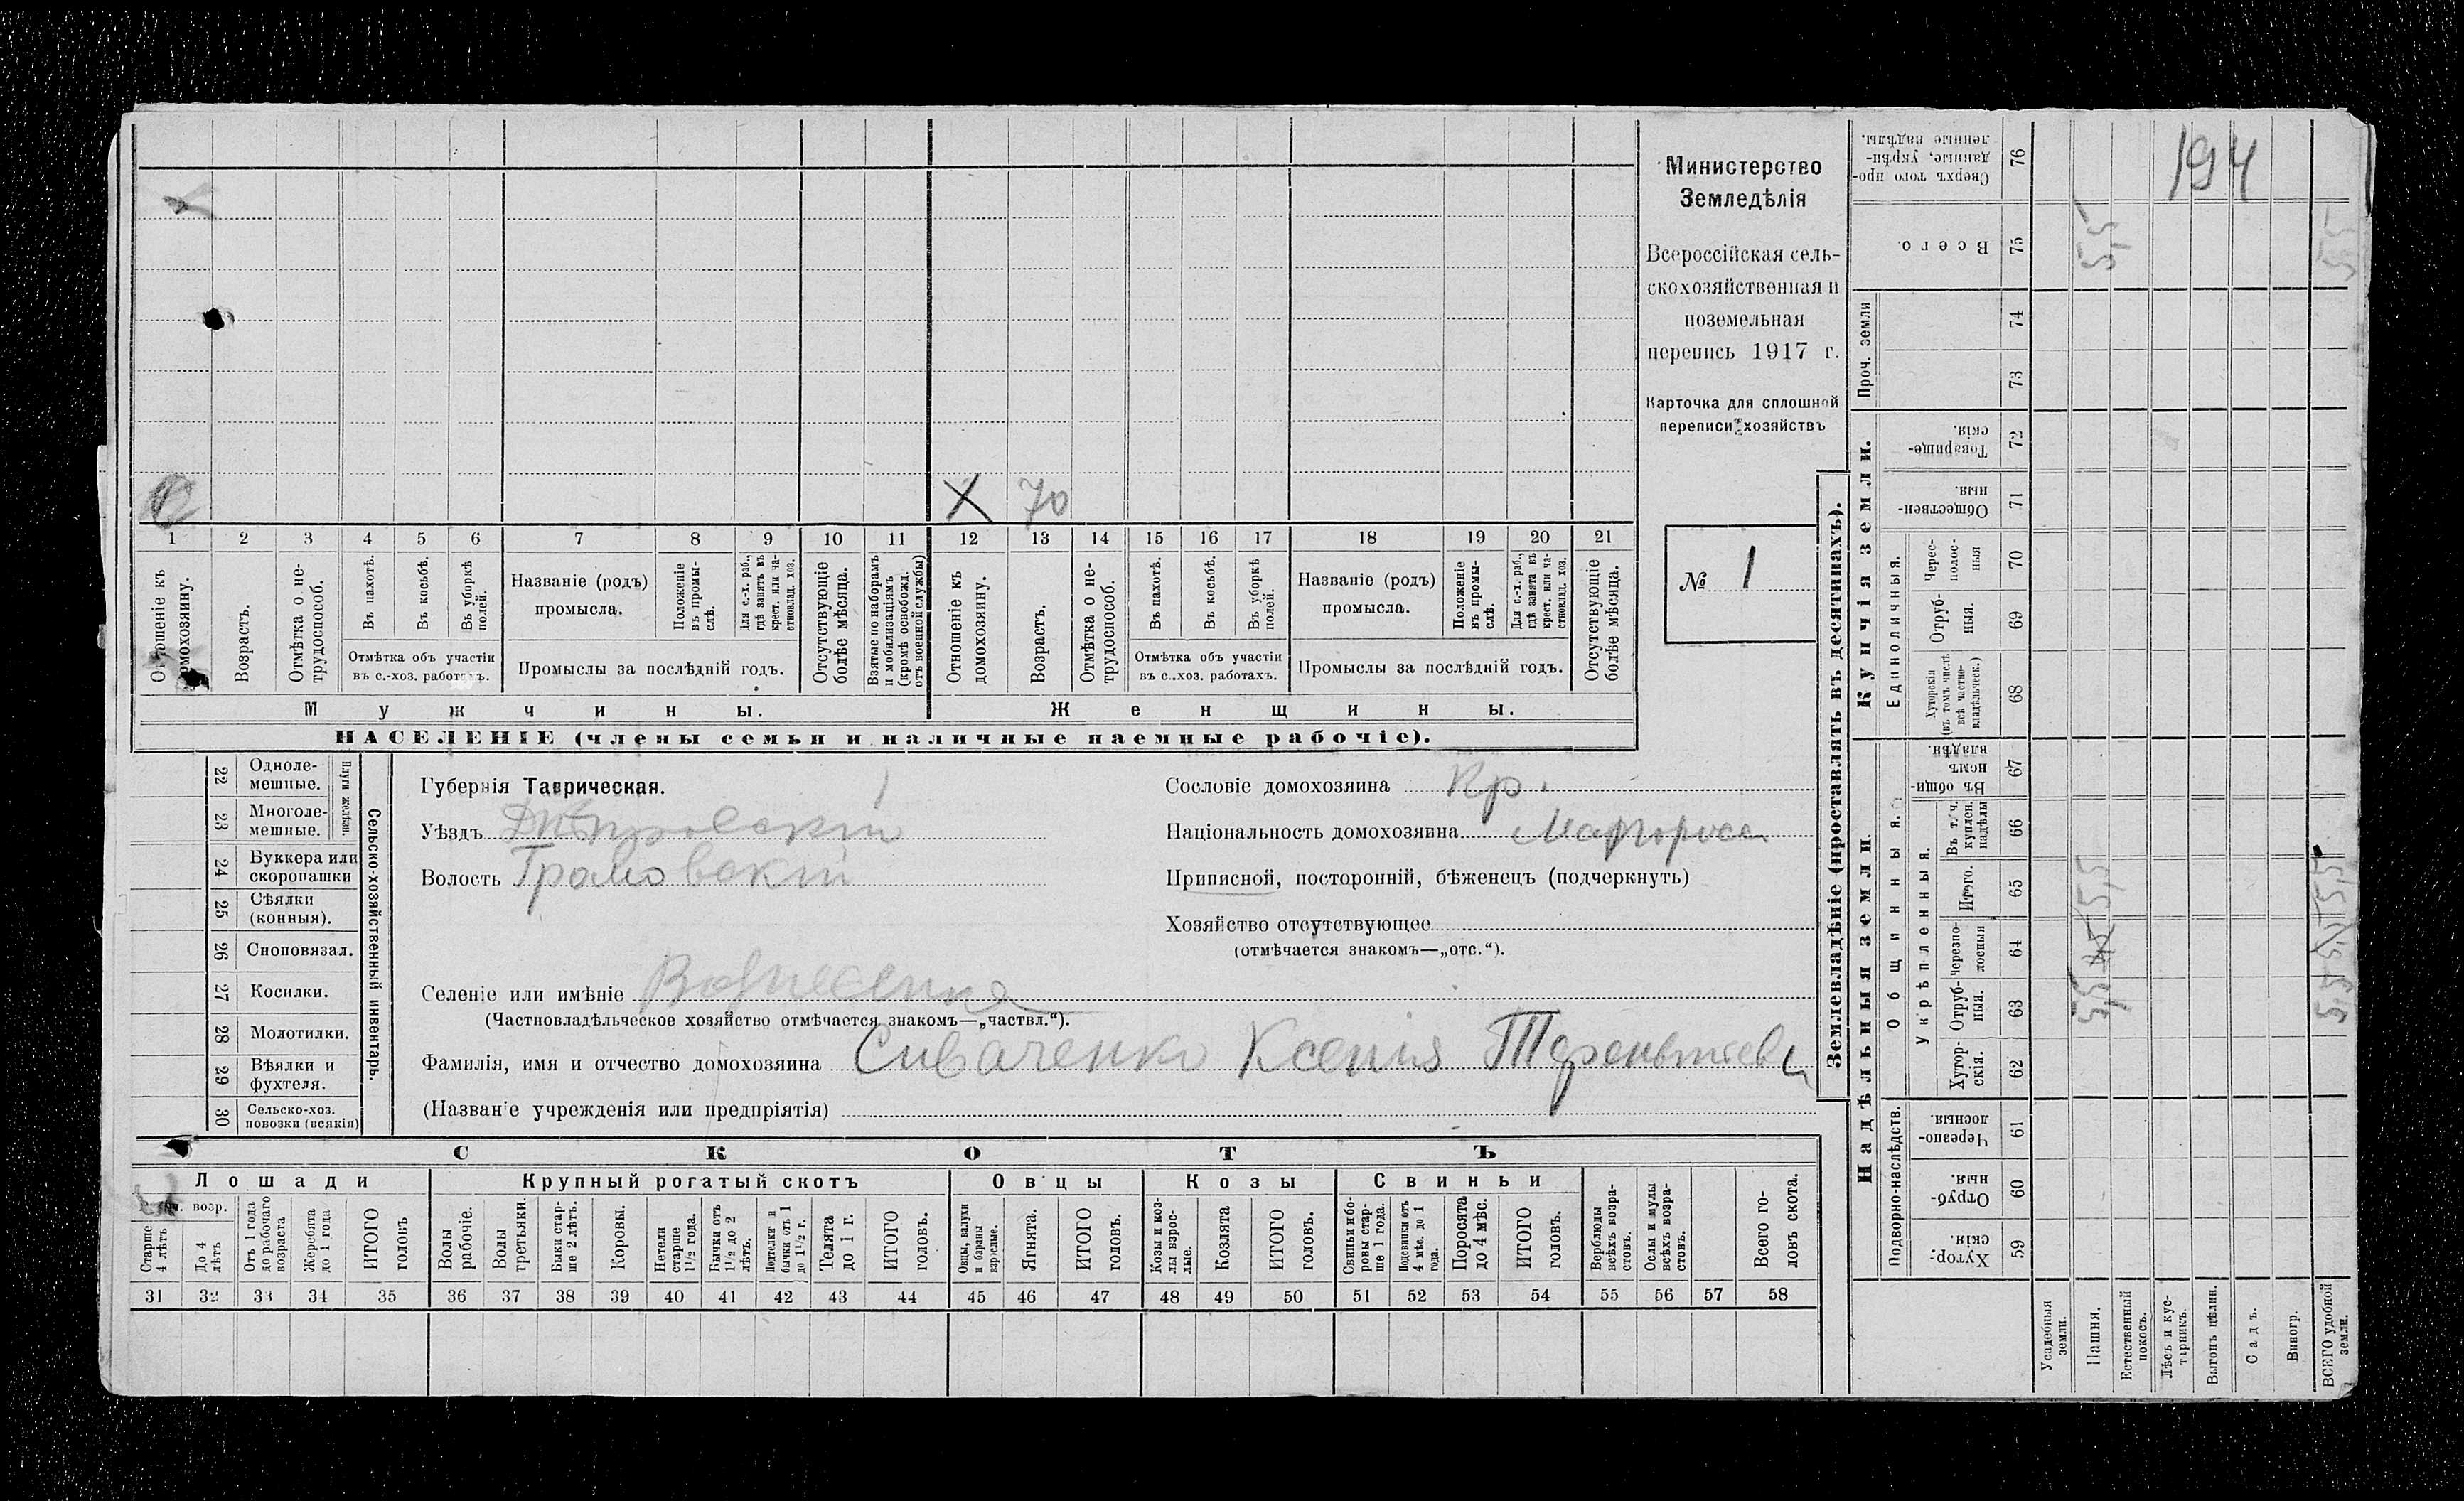 Министерство
Земледѣлія
Всероссійская сель-
скохозяйственная и
поземельная
перепись 1917 г.
Карточка для сплошной
переписи хозяйствъ
№ 1
X 70
1 2 3 4 5 6 7 8 9 10 11 12 13 14 15 16 17 18 19 20 21
Отношеніе къ домохозяину.
Возрастъ.
Отмѣтка о не-
трудоспособ.
Въ пахотѣ.
Въ косьбѣ.
Въ уборкѣ
полей.
Отмѣтка объ участіи
въ с.-хоз. работахъ.
Названіе (родъ)
промысла.
Положеніе
въ промы-
слѣ.
Для с.-х. раб.,
гдѣ занятъ въ
крест. или ча-
стновлад. хоз.
Промыслы за послѣдній годъ.
Отсутствующіе
болѣе мѣсяца.
Взятые по наборамъ
и мобилизаціямъ
(кромѣ освобожд.
отъ военной службы)
Отношеніе къ
домохозяину.
Возрастъ.
Отмѣтка о не-
трудоспособ.
Въ пахотѣ.
Въ косьбѣ.
Въ уборкѣ
полей.
Отмѣтка объ участіи
въ с.-хоз. работахъ.
Названіе (родъ)
промысла.
Положеніе
въ промы-
слѣ.
Для с.-х. раб.,
гдѣ занята въ
крест. или ча-
стновлад. хоз.
Промыслы за послѣдній годъ.
Отсутствующіе
болѣе мѣсяца.
Мужчины.
Женщины.
НАСЕЛЕНІЕ (члены семьи и наличные наемные рабочіе).
22 Одноле-
мешные.
23 Многоле-
мешные.
Плуги желѣзн.
24 Буккера или
скоропашки
25 Сѣялки
(конныя).
26 Сноповязал.
27 Косилки.
28 Молотилки.
29 Вѣялки и
фухтеля.
30 Сельско-хоз.
повозки (всякія)
Сельско-хозяйственный инвентарь.
Губернія Таврическая.
Уѣздъ Днѣпровскій
Волость Громовскій
Селеніе или имѣніе Вознесенка
(Частновладѣльческое хозяйство отмѣчается знакомъ—„частвл.“).
Фамилія, имя и отчество домохозяина Сиваченко Ксенія Терентьева
(Названіе учрежденія или предпріятія)
Сословіе домохозяина Кр.
Національность домохозяина Малоросс
Приписной, посторонній, бѣженецъ (подчеркнуть)
Хозяйство отсутствующее
(отмѣчается знакомъ—„отс.“).
СКОТЪ
Лошади
Крупный рогатый скотъ
Овцы
Козы
Свиньи
возр.
Старше
4 лѣтъ
До 4
лѣтъ
Отъ 1 года
до рабочаго
возраста
Жеребята
до 1 года
ИТОГО
головъ
Волы
рабочіе.
Волы
третьяки.
Быки стар-
ше 2 лѣтъ.
Коровы.
Нетели
старше
1½ года.
Бычки отъ
1½ до 2
лѣтъ.
Подтелки и
бычки отъ 1
до 1½ г.
Телята
до 1 г.
ИТОГО
головъ.
Овцы, валухи
и бараны
взрослые.
Ягнята.
ИТОГО
головъ.
Козы и коз-
лы взрос-
лые.
Козлята
ИТОГО
головъ.
Свиньи и бо-
ровы стар-
ше 1 года.
Подсвинки отъ
4 мѣс. до 1
года.
Поросята
до 4 мѣс.
ИТОГО
головъ.
Верблюды
всѣхъ возра-
стовъ.
Ослы и мулы
всѣхъ возра-
стовъ.
Всего го-
ловъ скота.
31 32 33 34 35 36 37 38 39 40 41 42 43 44 45 46 47 48 49 50 51 52 53 54 55 56 57 58
Землевладѣніе (проставлять въ десятинахъ).
Надѣльныя земли.
Купчія земли.
Проч. земли
Подворно-наслѣдств.
Общинныя.
Укрѣпленныя.
Единоличныя.
Сверхъ того про-
данные, укрѣп-
ленные надѣлы.
76
Всего.
75
74
73
Товарище-
скія.
72
Обществен-
ныя.
71
Черес-
полос-
ныя
70
Отруб-
ныя.
69
Хуторскія
(въ томъ числѣ
всѣ частно-
владѣльческ.)
68
Въ общи-
номъ
владѣн.
67
Въ т. ч.
куплен.
надѣлы
66
Итого.
65
Черезпо-
лосныя
64
Отруб-
ныя.
63
Хутор-
скія.
62
Черезпо-
лосныя.
61
Отруб-
ныя.
60
Хутор-
скія.
59
Усадебныя
земли.
Пашня.
Естественный
покосъ.
Лѣсъ и кус-
тарникъ.
Выгонъ цѣлин.
Садъ.
Виногр.
ВСЕГО удобной
земли.
194
5,5
5,5
5,5
5,5
5,5
5,5